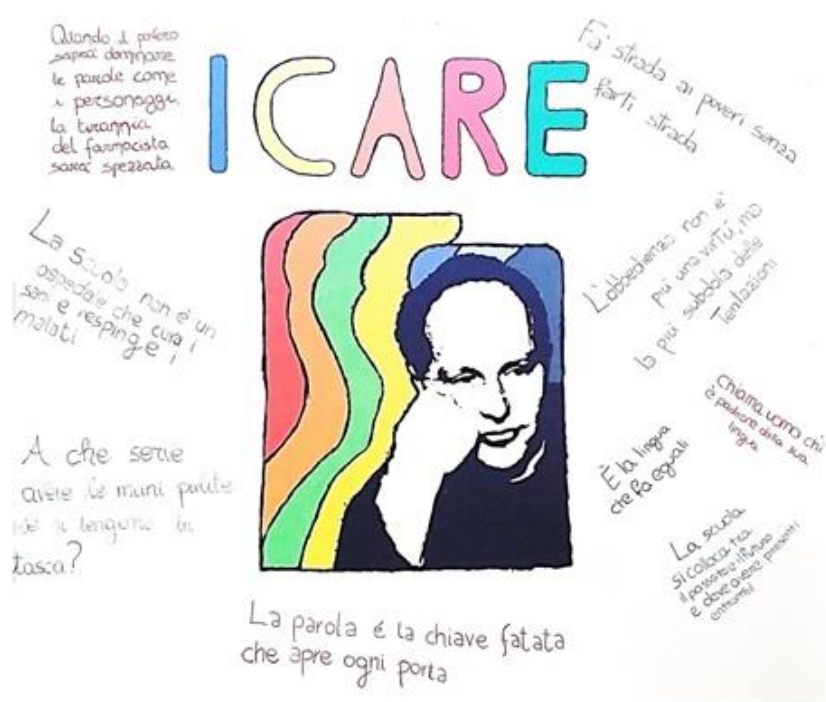 Quando il povero
saprà dominare
le parole come
i personaggi.
la tirannia
del farmacista
sarà spezzata
I CARE
Fa' strada ai poveri senza
farti strada
La scuola non é un
ospedale che cura i
sani e respinge i
malati
L'obbedienza non e'
più una virtù, ma
la più subdola delle
Tentazioni
chiama uomo chi
è padrone della sua
lingua
È la lingua
che fa eguali
A che serve
avere le mani pulite
se si tengono in
tasca?
La scuola
si colloca tra
il passato e il futuro
e deve avere presenti
entrambi
La parola é la chiave fatata
che apre ogni porta